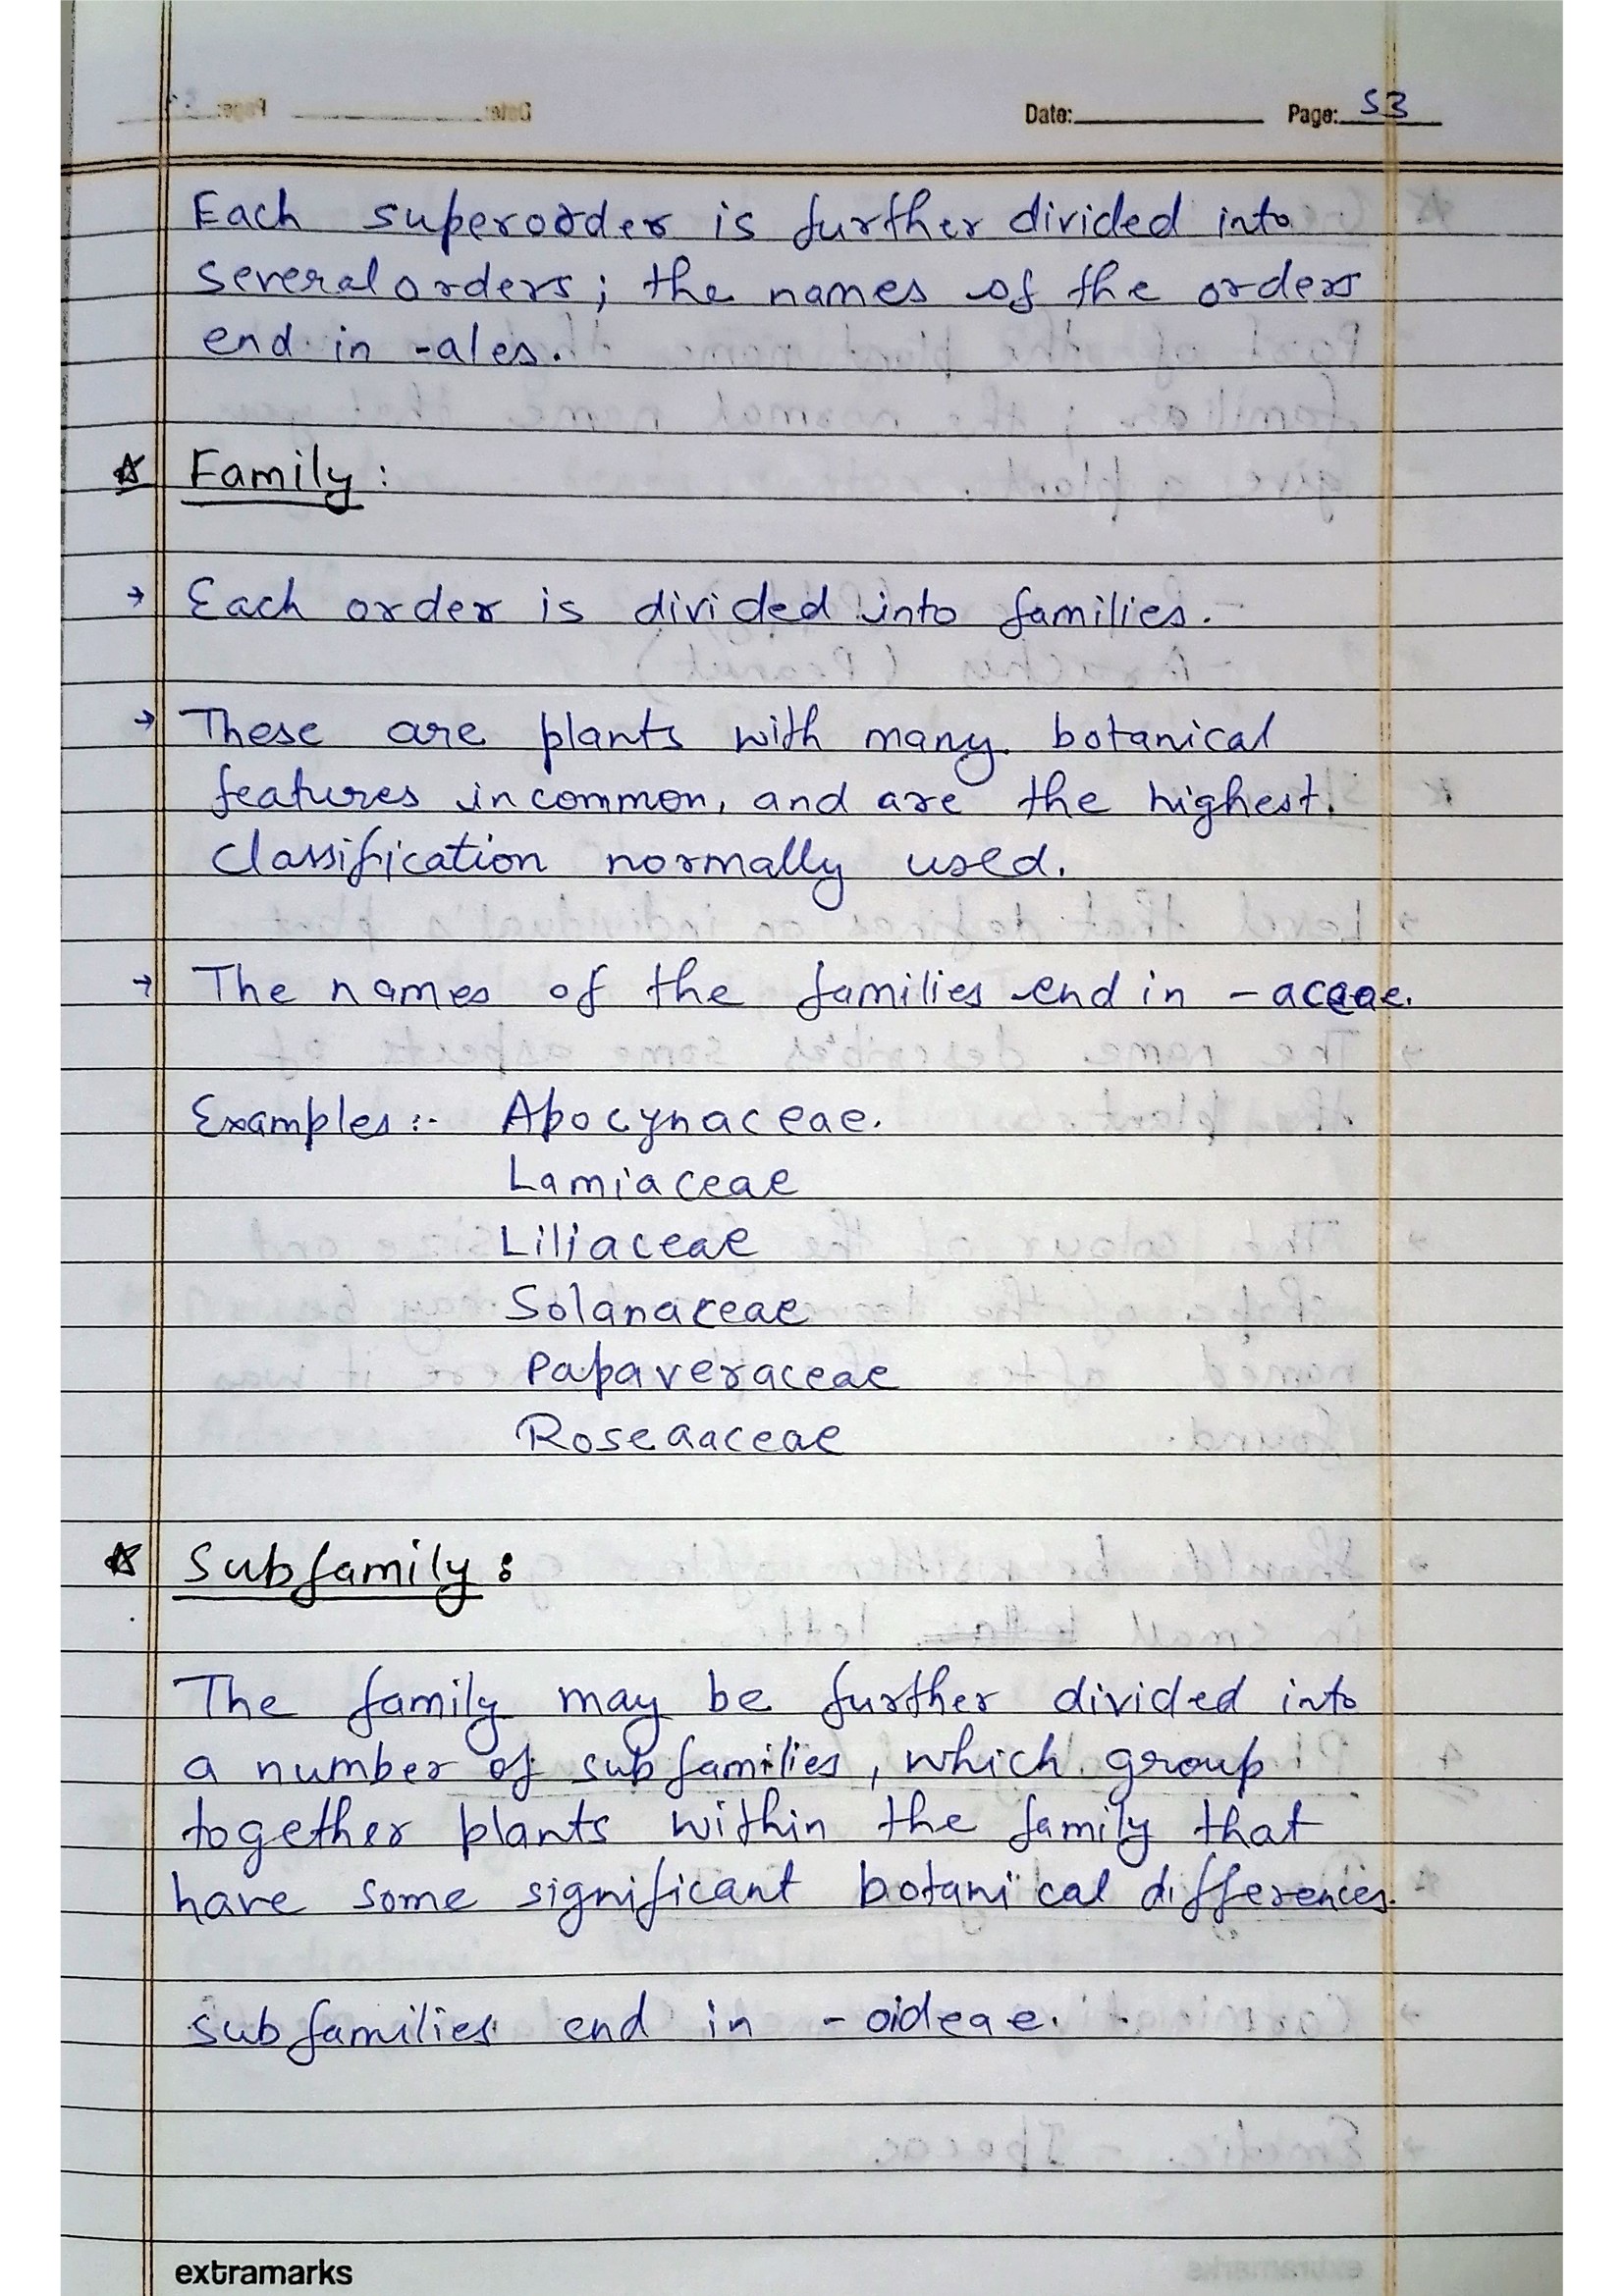 Date: Page: 53
Each superorder is further divided into
several orders; the names of the orders
end in -ales.
☆ Family:
→ Each order is divided into families.
→ These are plants with many botanical
features in common, and are the highest
classification normally used.
→ The names of the families end in -aceae.
Examples:- Apocynaceae.
Lamiaceae
Liliaceae
Solanaceae
Papaveraceae
Roseaaceae
☆ Subfamily:
The family may be further divided into
a number of subfamilies, which group
together plants within the family that
have some significant botanical differences.
subfamilies end in - oideae.
extramarks